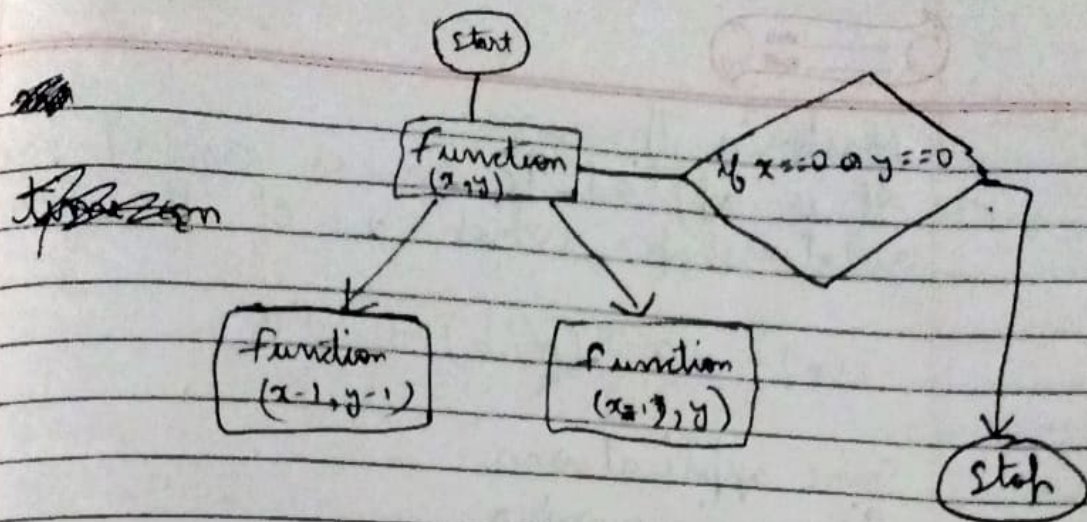 Start
function
(x, y)
if x==0 or y==0
function
(x-1, y-1)
function
y)
Stop